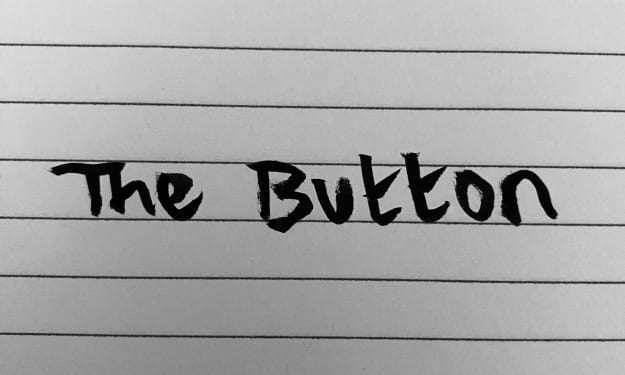 The Button